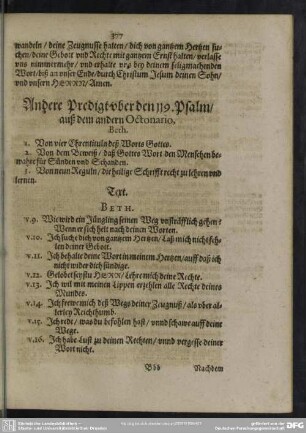 377
wandeln / deine Zeugnusse halten / dich von gantzem Hertzen su-
chen / deine Gebott vnd Rechte mit gantzem Ernst halten / verlasse
vns nimmermehr / vnd erhalte vns bey deinem seligmachenden
Wort / biß an vnser Ende / durch Christum Jesum deinen Sohn /
vnd vnsern HERRN / Amen.
Andere Predigt vber den 119. Psalm /
auß dem andern Octonario.
Beth.
1. Von vier Ehrentituln deß Worts Gottes.
2. Von dem Beweiß / daß Gottes Wort den Menschen be-
wahre für Sünden vnd Schanden.
3. Von neun Reguln / die heilige Schrifft recht zu lehren vnd
lernen.
Text.
BETH.
v.9. Wie wird ein Jüngling seinen Weg vnsträfflich gehen?
Wenn er sich helt nach deinen Worten.
v.10. Ich suche dich von gantzem Hertzen / Laß mich nicht feh-
len deiner Gebott.
v.11. Ich behalte deine Wort in meinem Hertzen / auff daß ich
nicht wider dich sündige.
v.12. Gelobet seystu HERR / Lehre mich deine Rechte.
v.13. Ich wil mit meinen Lippen erzehlen alle Rechte deines
Mundes.
v.14. Ich frewe mich deß Wegs deiner Zeugnuß / als vber al-
lerley Reichthumb.
v.15. Ich rede / was du befohlen hast / vnnd schawe auff deine
Wege.
v.16. Ich habe Lust zu deinen Rechten / vnnd vergesse deiner
Wort nicht.
Bbb Nachdem